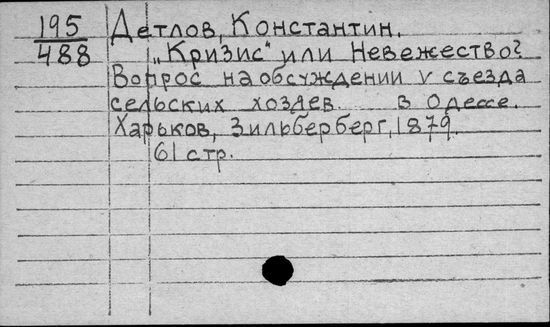 195
488
Детлов, Константин.
„Кризис" или Невежество?
Вопрос на обсуждении V съезда
сельских хозяев в Одессе.
Харьков, Зильберберг, 1879.
61 стр.